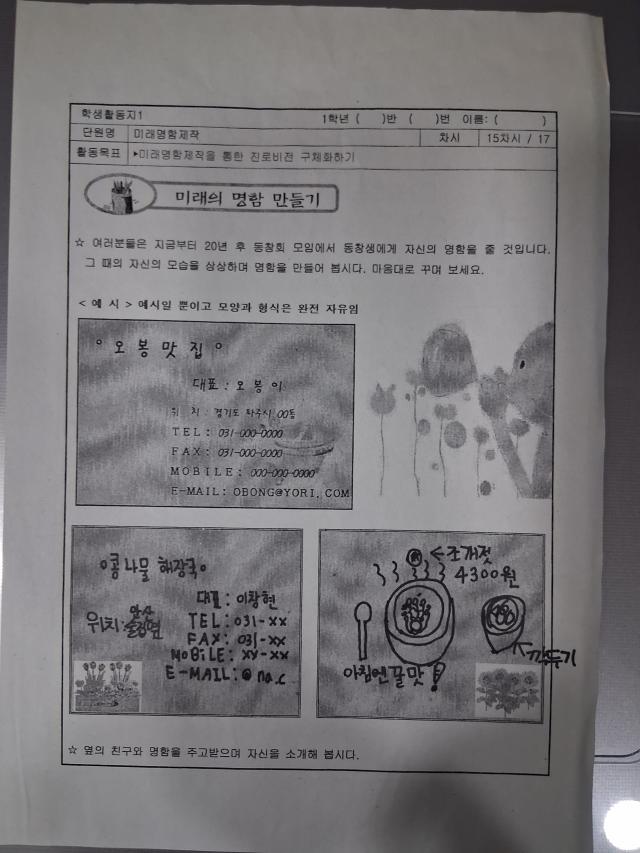 학생활동지1 1학년 ( )반 ( )번 이름: ( )
단원명 미래명함제작 차시 15차시 / 17
활동목표 ▸미래명함제작을 통한 진로비전 구체화하기
미래의 명함 만들기
☆ 여러분들은 지금부터 20년 후 동창회 모임에서 동창생에게 자신의 명함을 줄 것입니다.
그 때의 자신의 모습을 상상하며 명함을 만들어 봅시다. 마음대로 꾸며 보세요.
< 예 시 > 예시일 뿐이고 모양과 형식은 완전 자유임
° 오 봉 맛 집 °
대표 : 오 봉 이
위 치 : 경기도 파주시 00동
TEL: 031-000-0000
FAX: 031-000-0000
MOBILE: 000-000-0000
E-MAIL: OBONG@YORI.COM
°콩나물 해장국°
대표: 이창현
위치:
TEL: 031-xx
FAX: 031-xx
MOBILE: xx-xx
E-MAIL: @ na.c
←조개젓
4300원
깍두기
아침엔 꿀맛!
☆ 옆의 친구와 명함을 주고받으며 자신을 소개해 봅시다.